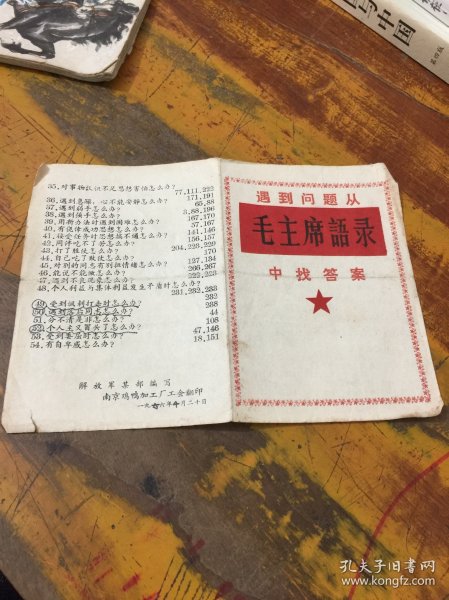 35. 对事物认识不足思想害怕怎么办?
77,111,222
36. 遇到急躁,心不能安静怎么办? 171,191
37. 遇到弱手怎么办? 65,88
38. 遇到强手怎么办? 3,88,196
39. 用郭办法时遇到困难怎么办? 167,170
40. 有侥倖成功思想怎么办? 57,167
41. 接受任务时思想搞不通怎么办? 141,146
42. 同伴吃不了苦怎么办? 156,157
43. 打了胜仗怎么办? 204,228,229
44. 自己吃了败仗怎么办? 170
45. 对别的同志有别扭情绪怎么办? 127,134
46. 能说不能做怎么办? 266,267
47. 遇到不良现象怎么办? 222,223
48. 个人利益与集体利益发生矛盾时怎么办?
231,232,233
49. 受到讽刺打击时怎么办? 232
50. 遇到落后同志怎么办? 288
51. 分不清是非怎么办? 44
52. 个人主义冒头了怎么办? 108
53. 受到委屈时怎么办? 47,146
54. 有自卑感怎么办? 18,151
解放军某部编写
南京鸡鸭加工厂工会翻印
一九六六年十月二十日
遇到问题从
毛主席語录
中找答案
中国
第四版
孔夫子旧书网
www.kongfz.com